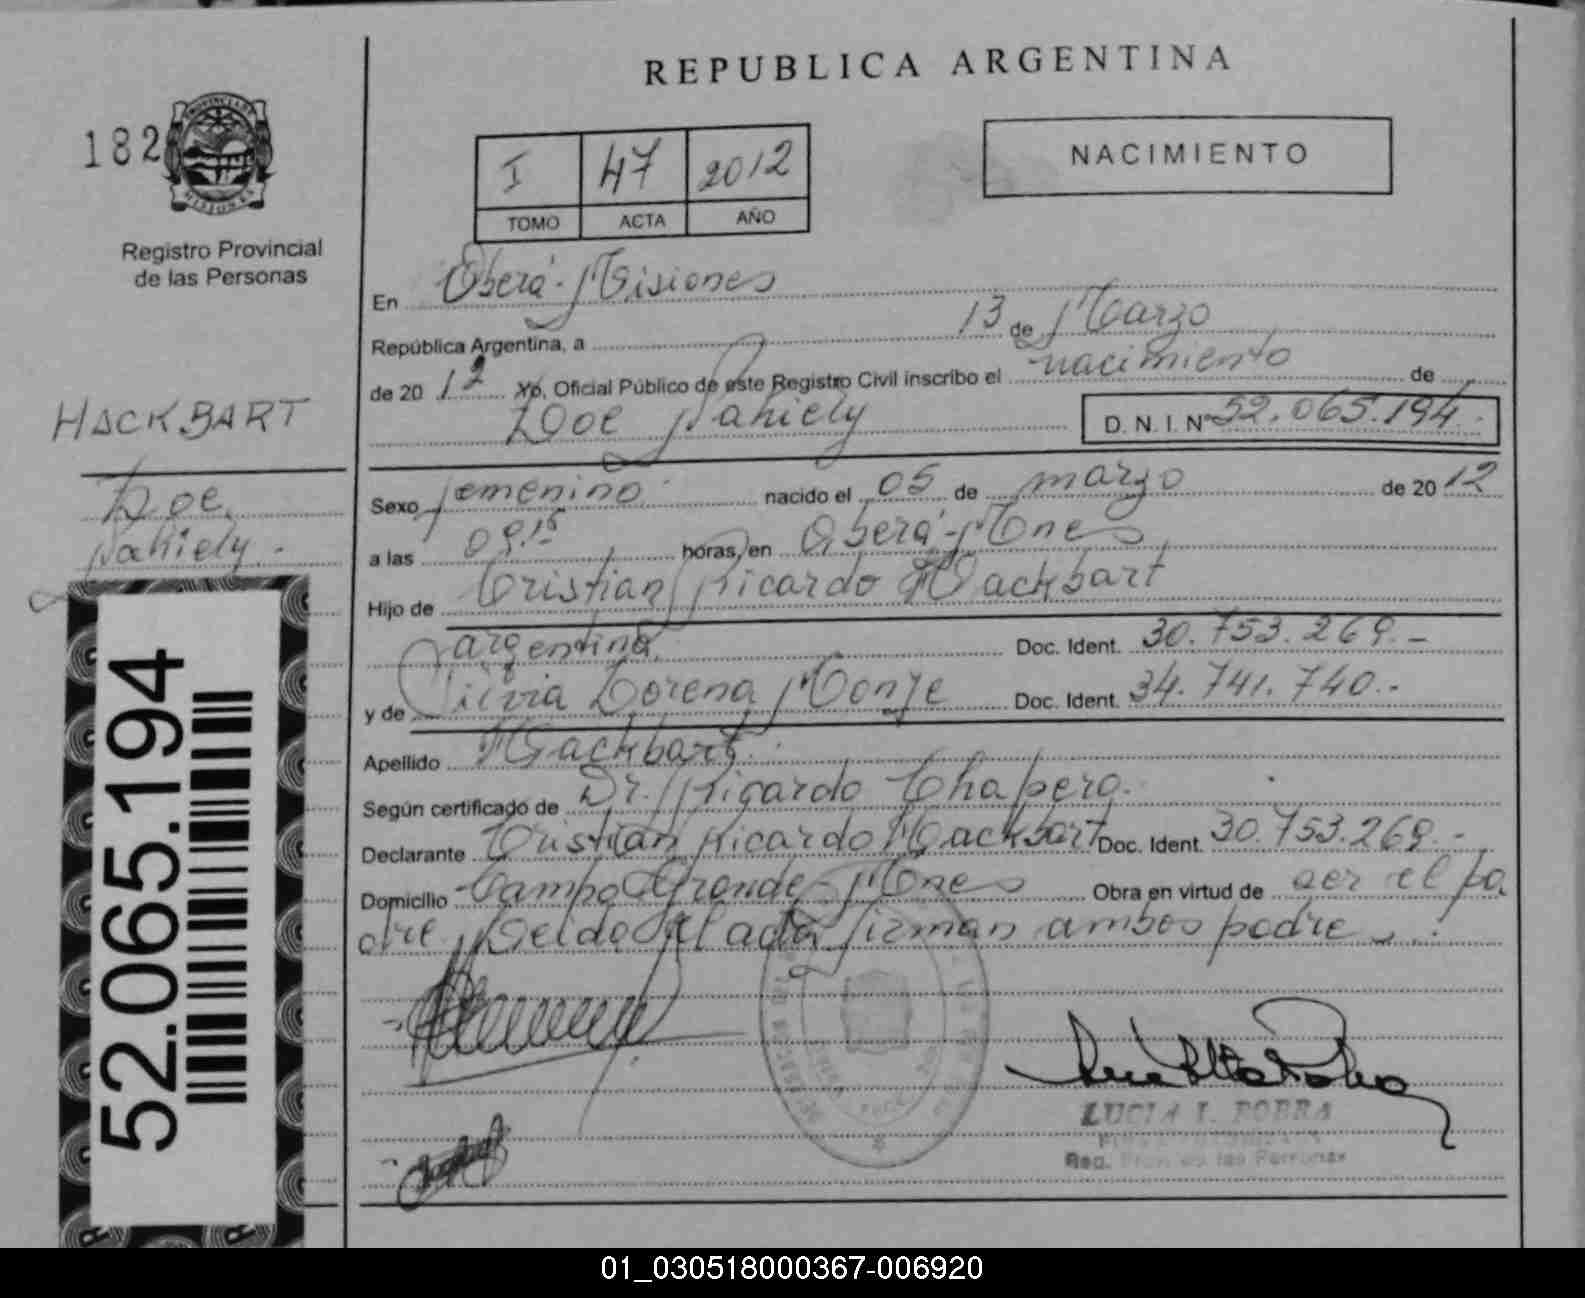 REPUBLICA ARGENTINA
182
PROVINCIA DE MISIONES
Registro Provincial
de las Personas
I 47 2012
TOMO ACTA AÑO
NACIMIENTO
En Oberá-Misiones
República Argentina, a 13 de Marzo
de 20 12 Yo, Oficial Público de este Registro Civil inscribo el nacimiento de
Zoe Nahiely D. N. I. N° 52.065.194.-
HACKBART
Zoe
Nahiely.
Sexo femenino nacido el 05 de marzo de 20 12
a las 09.15 horas, en Oberá-Mnes
Hijo de Cristian Ricardo Hackbart
argentina Doc. Ident. 30.753.269.-
y de Silvia Lorena Monje Doc. Ident. 34.741.740.-
Apellido Hackbart
Según certificado de Dr. Ricardo
Declarante Cristian Ricardo Hackbart Doc. Ident. 30.753.269.-
Domicilio Campo Grande-Mnes Obra en virtud de ser el pa
dre. Leída el acta firman ambos padre
52.065.194
LUCIA I.
Reg. Prov. de las Personas
01_030518000367-006920